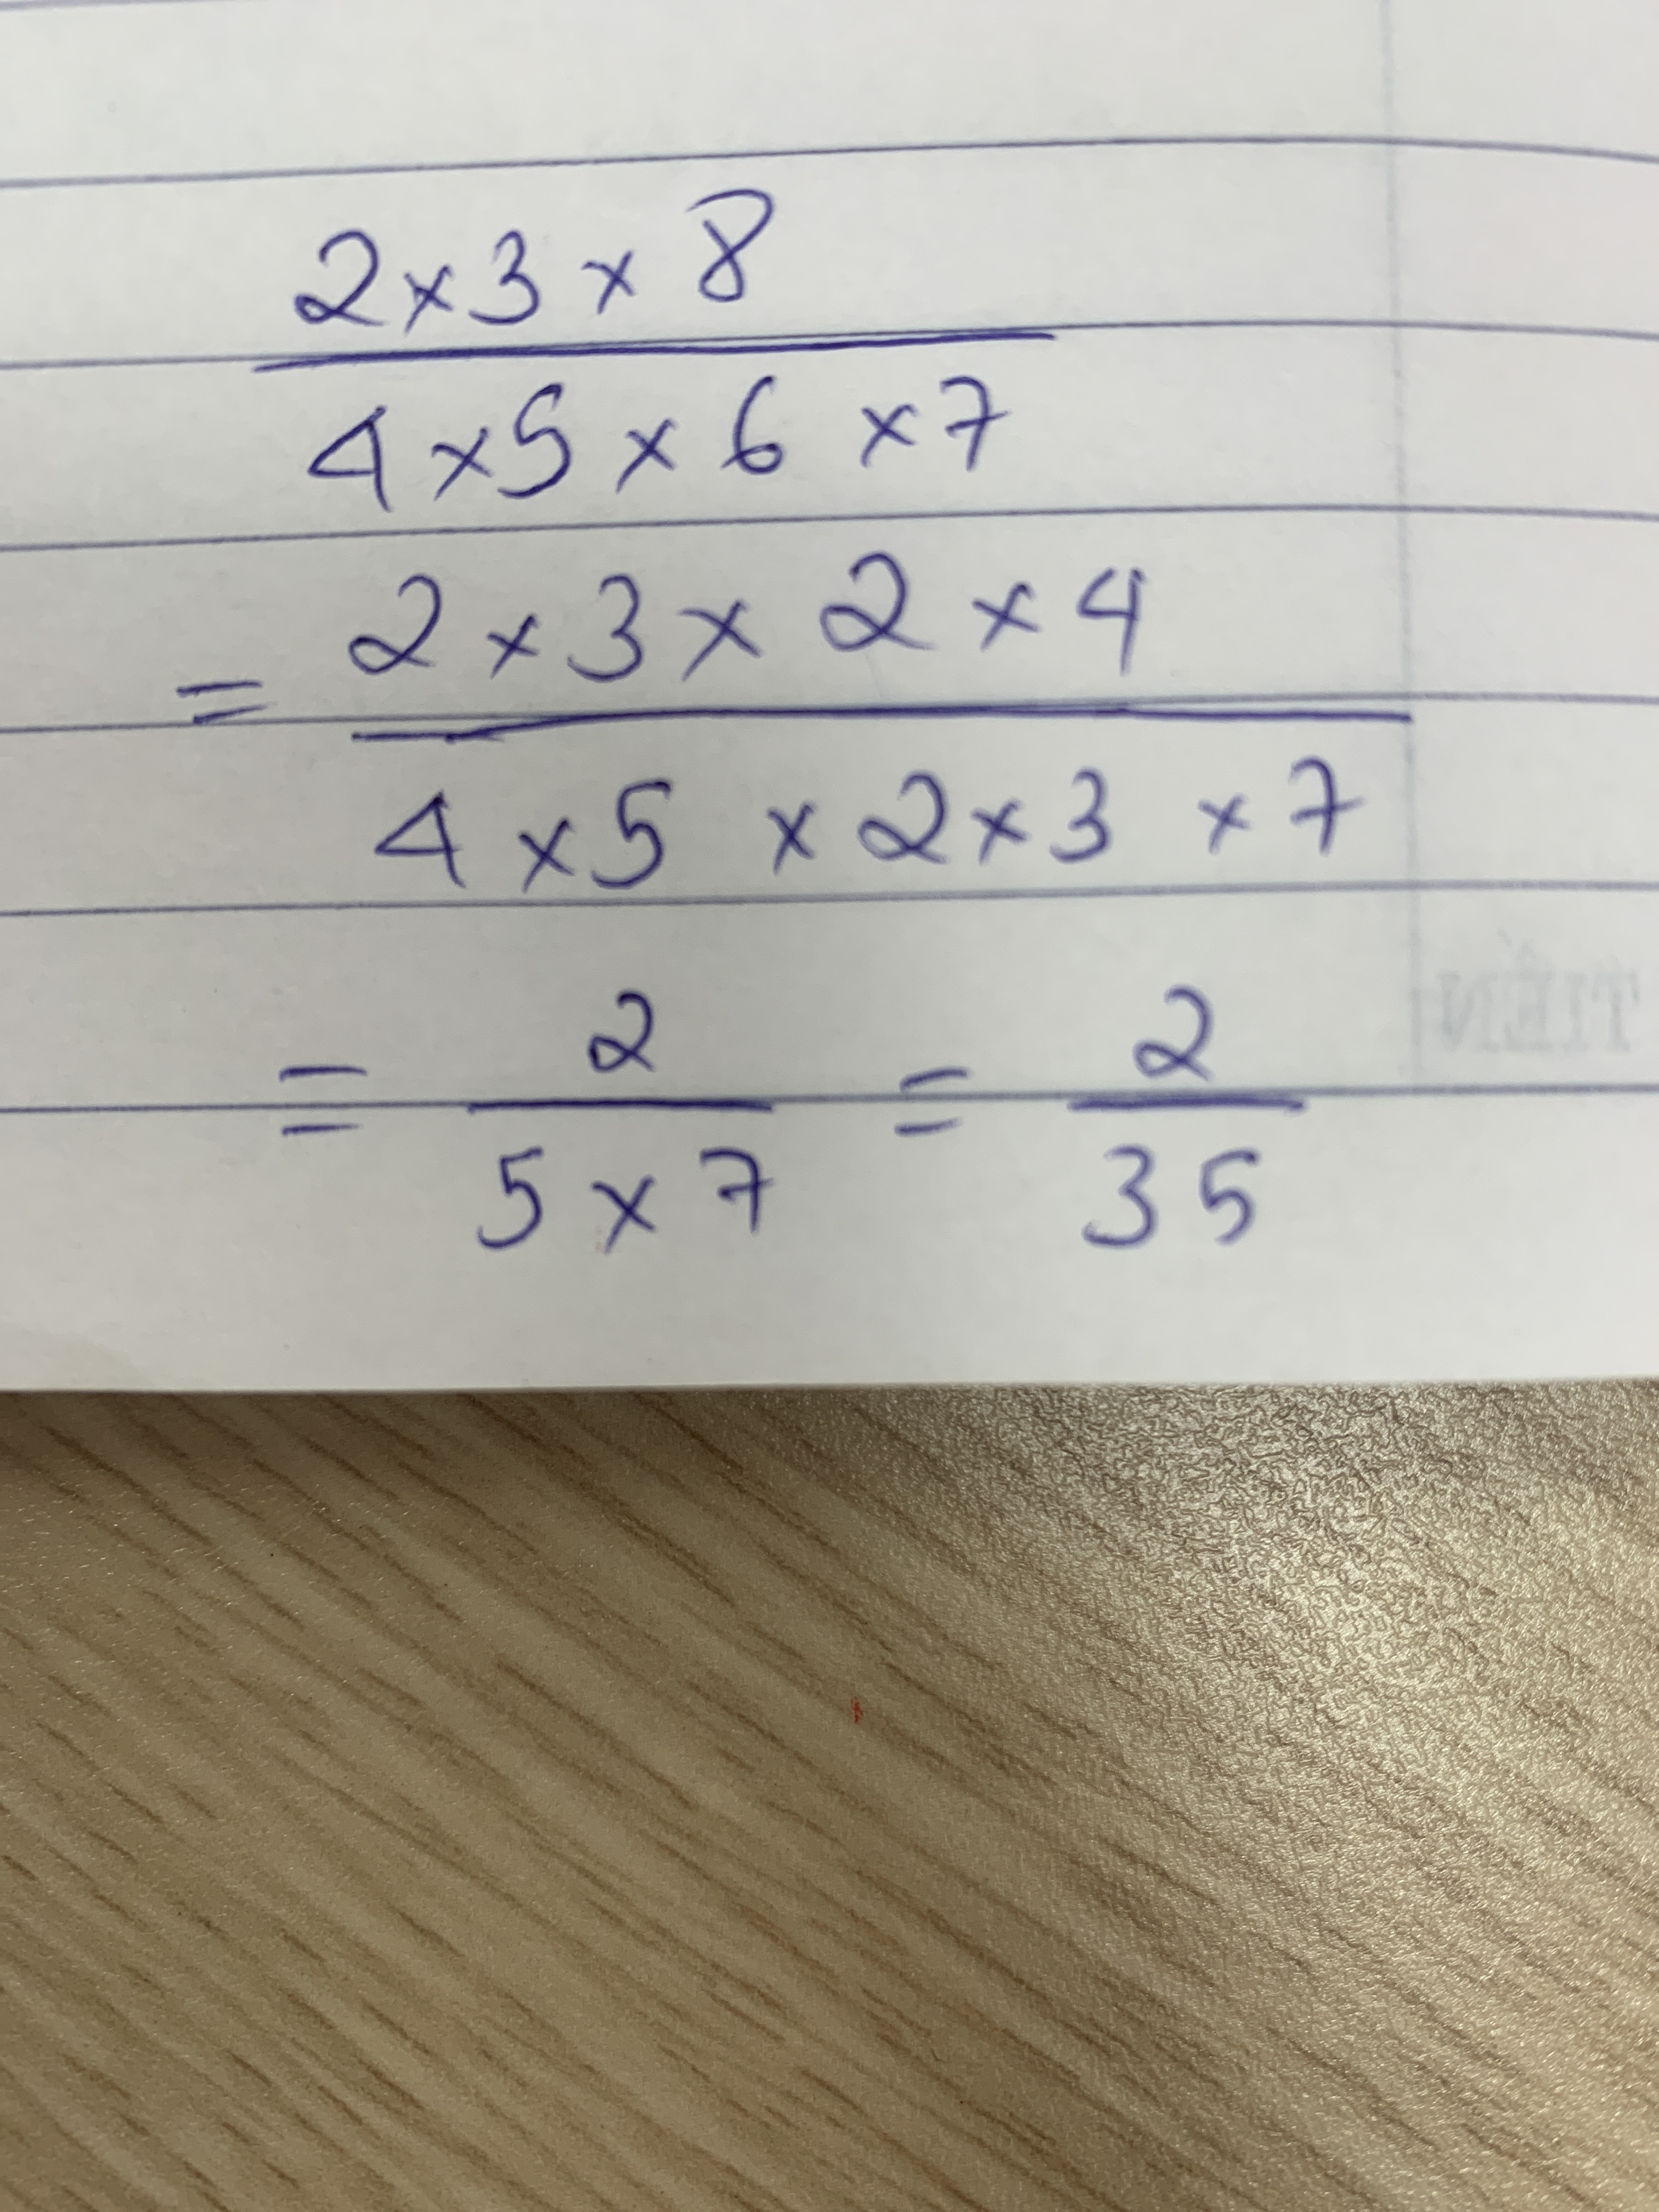 2 × 3 × 8
4 × 5 × 6 × 7
= 2 × 3 × 2 × 4
4 × 5 × 2 × 3 × 7
= 2 = 2
5 × 7 35
TIỀN